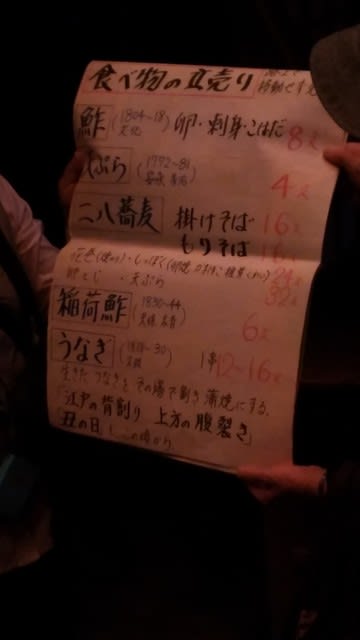 食べ物の立売り
鮓 (1804~18) 文化 卵・刺身・こはだ 8文
天ぷら (1772~81) 安永 4文
二八蕎麦 掛けそば 16文
もりそば 16文
花巻 ・しっぽく 24文
・天ぷら 32文
稲荷鮓 (1830~44) 6文
うなぎ 1串 12~16文
生きたうなぎをその場で割き蒲焼にする。
「江戸の背割り 上方の腹裂き」
「丑の日」この頃から